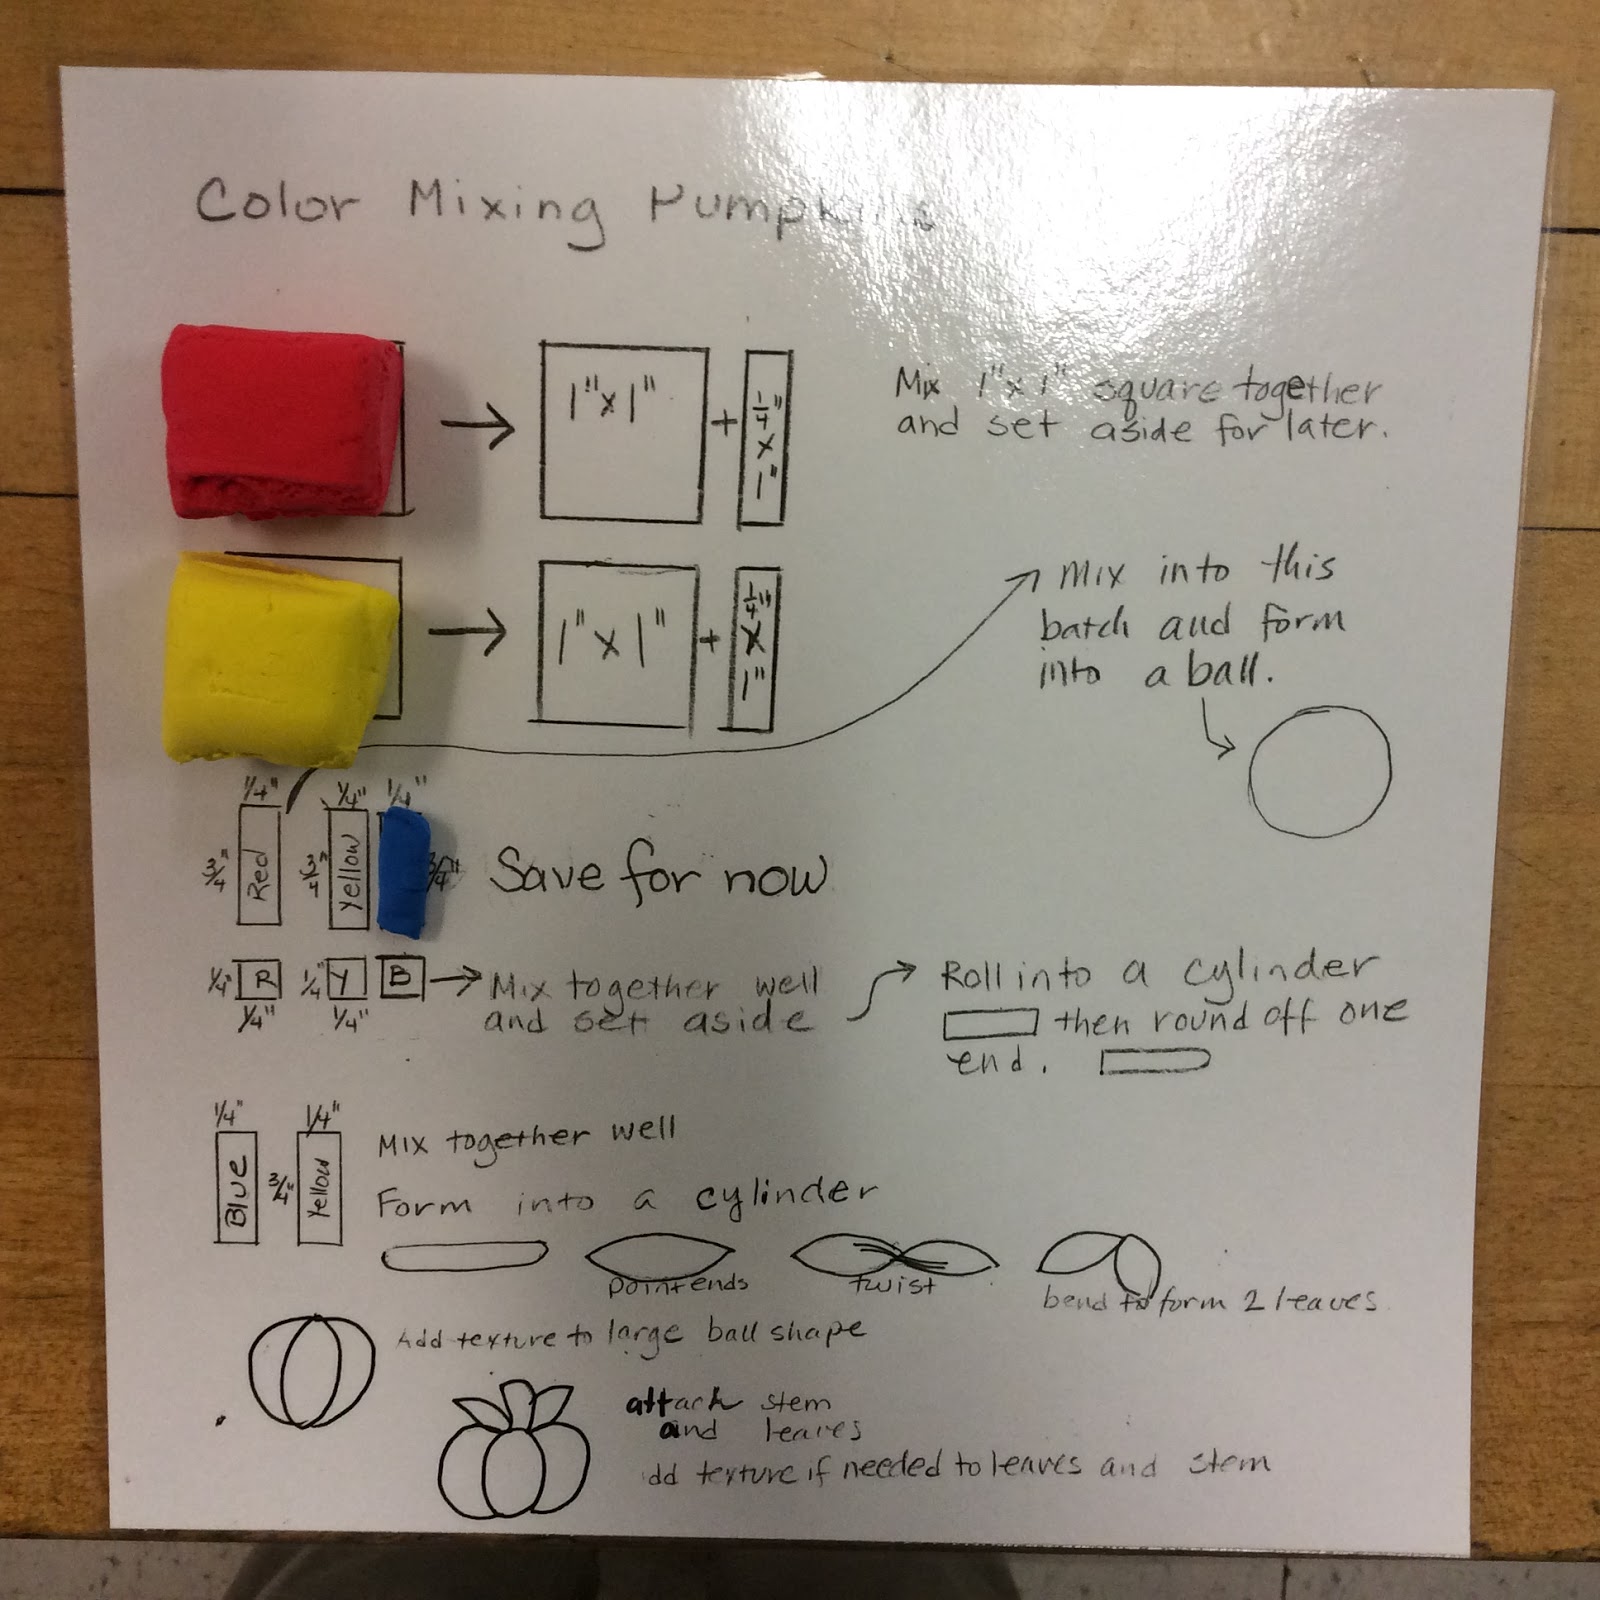 Color Mixing Pumpkins
1" x 1" + 1/4" x 1"
Mix 1" x 1" square together
and set aside for later.
1" x 1" + 1/4" x 1"
Mix into this
batch and form
into a ball.
1/4" 1/4" 1/4"
3/4" Red 3/4" Yellow 3/4"
Save for now
1/4" R 1/4" Y B
1/4" 1/4"
Mix together well
and set aside
Roll into a cylinder
then round off one
end.
1/4" 1/4"
Blue 3/4" Yellow
Mix together well
Form into a cylinder
point ends
twist
bend to form 2 leaves
Add texture to large ball shape
attach stem
and leaves
dd texture if needed to leaves and stem